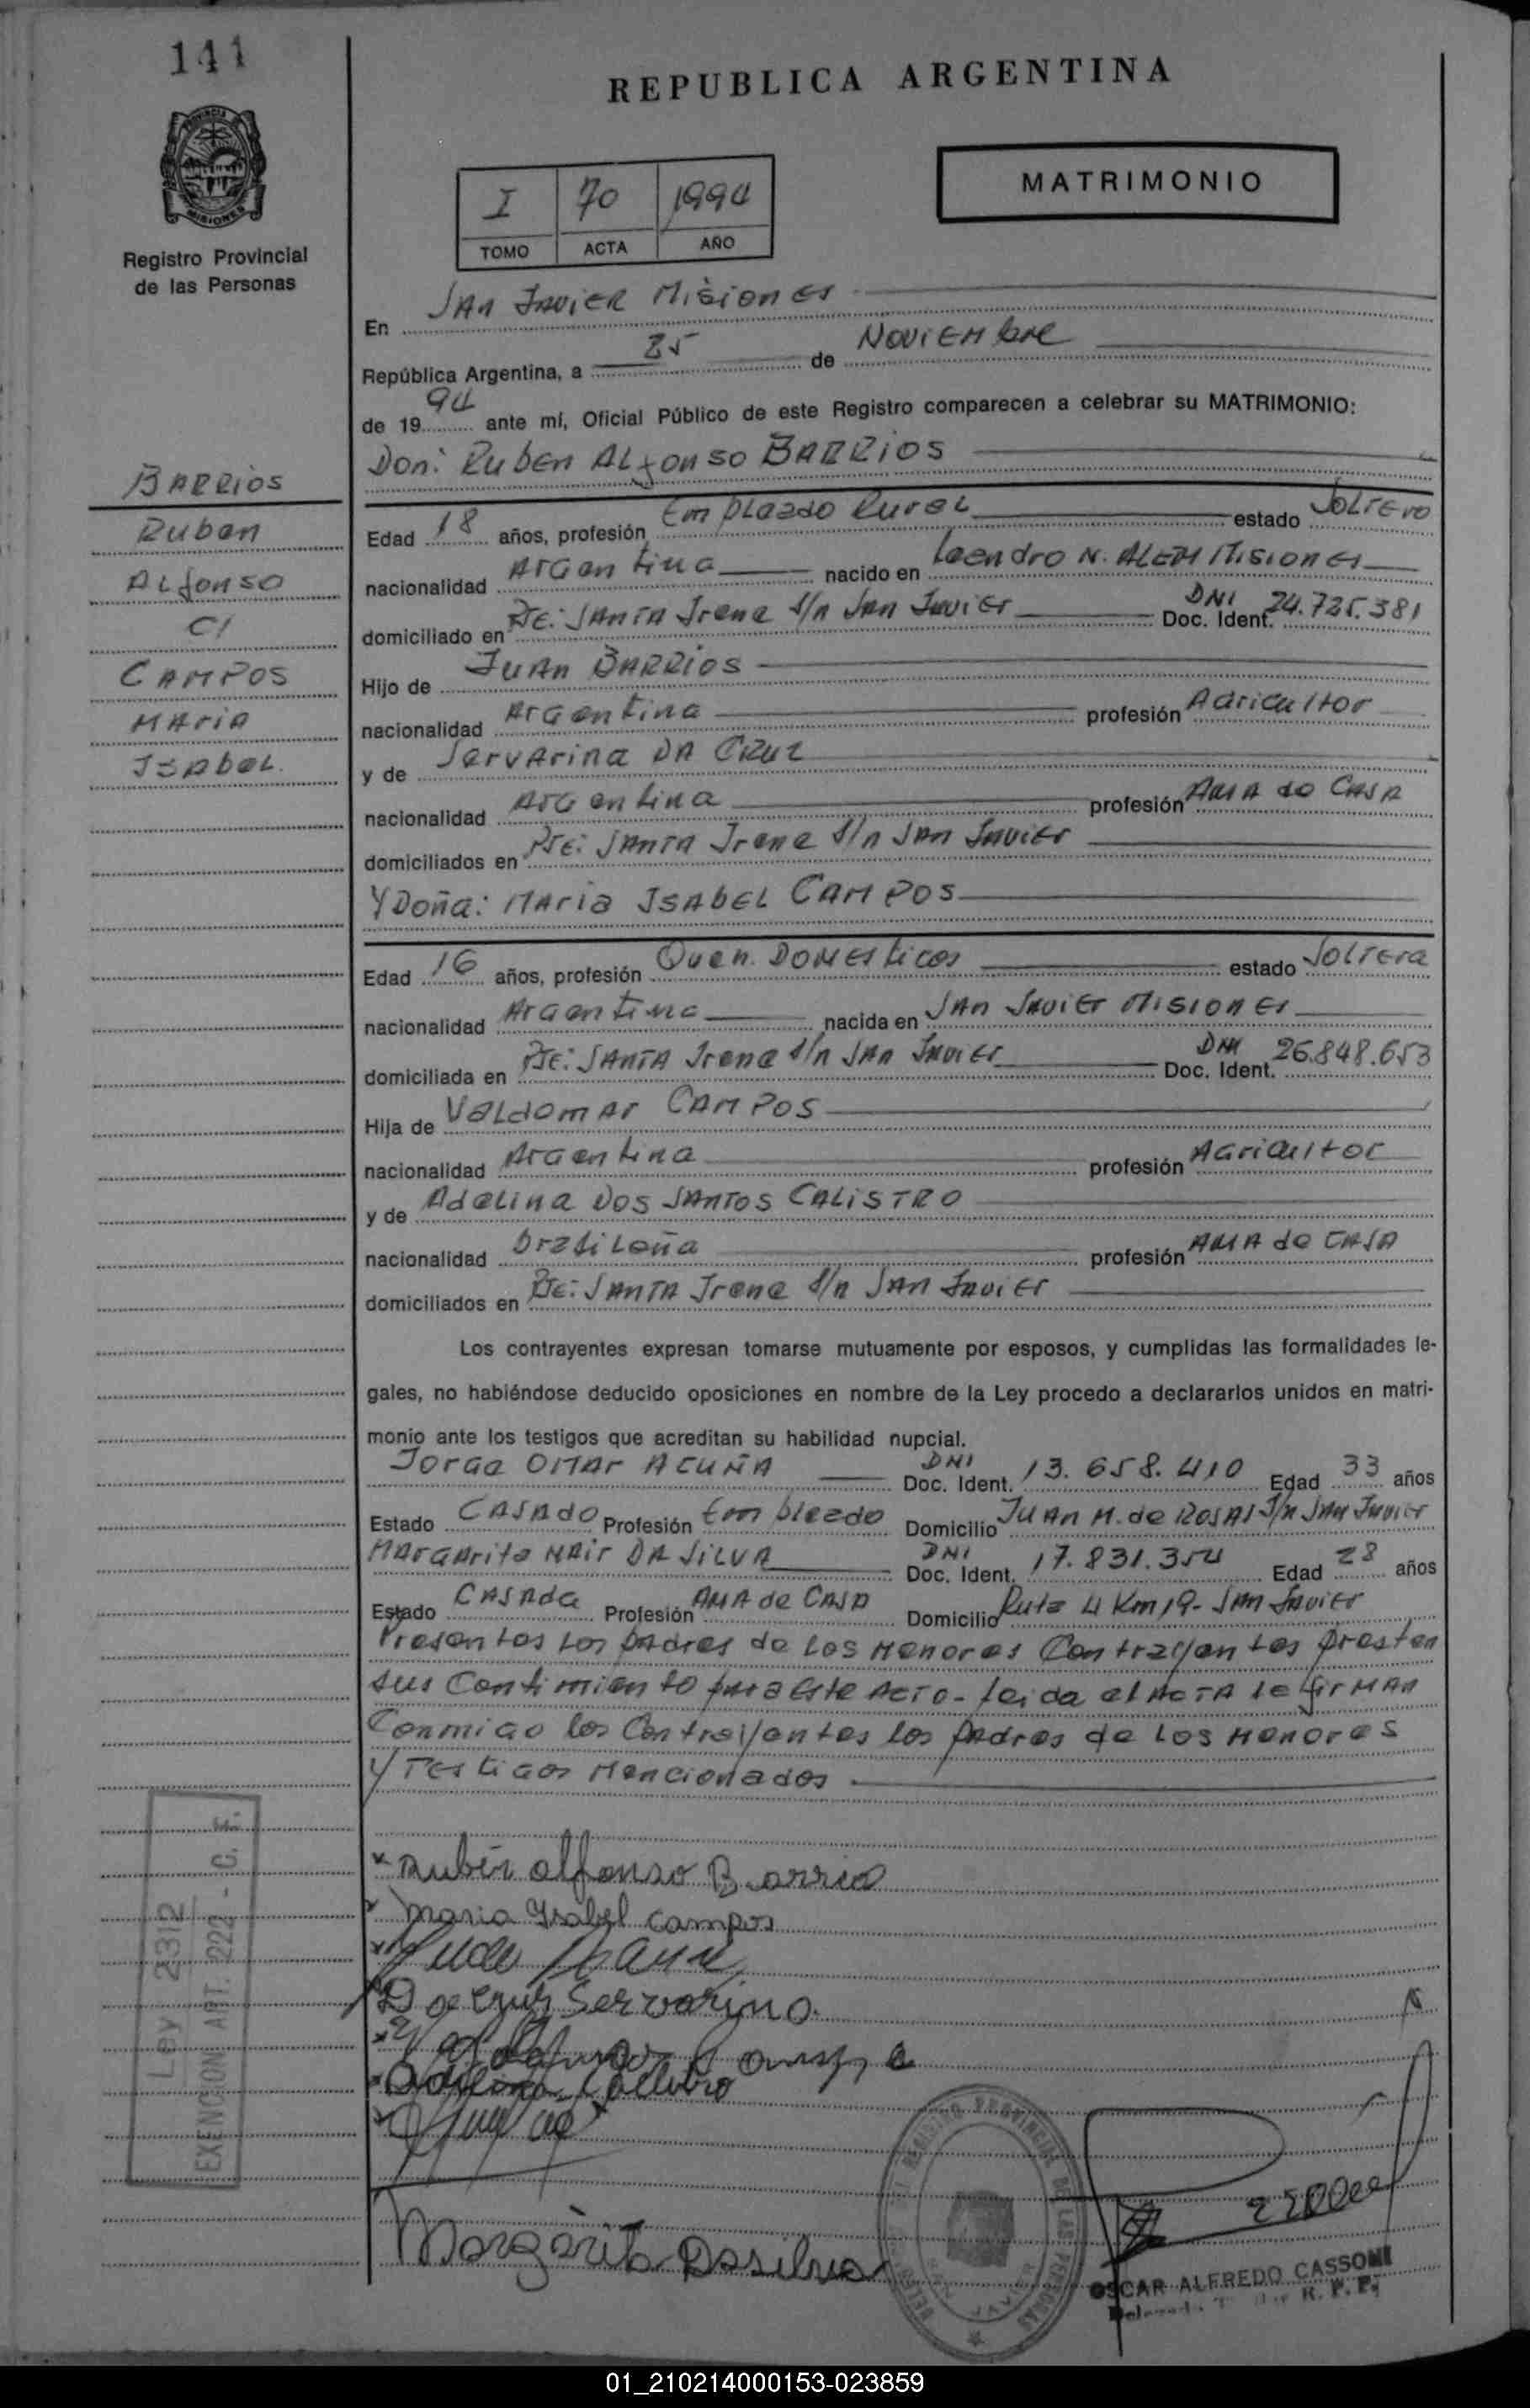 141
REPUBLICA ARGENTINA
MATRIMONIO
I 70 1994
TOMO ACTA AÑO
PROVINCIA DE
MISIONES
Registro Provincial
de las Personas
En SAn JAvier Misiones
República Argentina, a 25 de Noviembre
de 1994 ante mí, Oficial Público de este Registro comparecen a celebrar su MATRIMONIO:
Don: Ruben Alfonso BARRIOS
BARRIOS
Ruben
Alfonso
C/
CAMPOS
MAriA
ISAbeL.
Edad 18 años, profesión Empleado Rural estado SoLTEro
nacionalidad Argentina nacido en Leandro N. ALEM MISIONES
domiciliado en Pje: SANTA Irene S/n San Javier DNI Doc. Ident. 24.725.381
Hijo de JUAn BARRIOS
nacionalidad Argentina profesión Agricultor
y de Servarina DA CRUZ
nacionalidad Argentina profesión AMA de CASA
domiciliados en Pje: SANTA Irene S/n San Javier
Y Doña: MAria ISAbEL CAMPOS
Edad 16 años, profesión Queh. Domesticos estado SoLTEra
nacionalidad Argentina nacida en SAn Javier MISIONES
domiciliada en Pje: SANTA Irene S/n SAn Javier DNI Doc. Ident. 26.848.653
Hija de Valdomar CAMPOS
nacionalidad Argentina profesión Agricultor
y de Adelina DOS SANTOS CALISTRO
nacionalidad brasileña profesión AMA de CASA
domiciliados en Pje: SANTA Irene S/n SAn Javier
Los contrayentes expresan tomarse mutuamente por esposos, y cumplidas las formalidades le-
gales, no habiéndose deducido oposiciones en nombre de la Ley procedo a declararlos unidos en matri-
monio ante los testigos que acreditan su habilidad nupcial.
Jorge OMAr ACUÑA DNI Doc. Ident. 13.658.410 Edad 33 años
Estado CASAdo Profesión Empleado Domicilio JUAn M. de ROSAS S/n SAn Javier
MArgArita NAir DA SILVA DNI Doc. Ident. 17.831.354 Edad 28 años
Estado CASAda Profesión AMA de CASA Domicilio Ruta 4 Km 19- SAn Javier
Presentes los padres de los Menores Contrayentes presten
sus Contimiento para este Acto- leida el ActA le firMAn
Conmigo los Contrayentes los padres de los Menores
y Testigos Mencionados
x Rubén alfonso Barrios
x maria Ysabel campos
Da Cruz Servarina.
Margarita Dasilva
Ley 2312
EXENCION ART. 222 - C. F.
REGISTRO PROVINCIAL DE LAS PERSONAS
SAN JAVIER
OSCAR ALFREDO CASSONI
R. P. P.
01_210214000153-023859